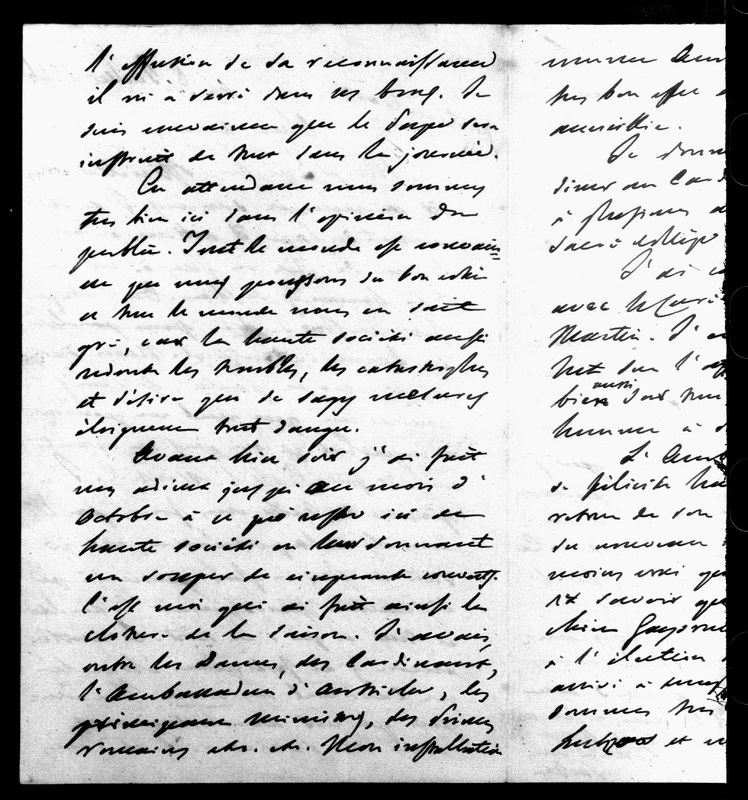 l'effusion de sa reconnaissance
il m'a serré dans ses bras. Je
suis convaincu que le Pape sera
instruit de tout dans la journée.
En attendant nous sommes
très bien ici dans l'opinion du
public. Tout le monde est convain=
cu que nous poussons du bon côté
et tout le monde nous en sait
gré, car la haute société aussi
redoute les troubles, les catastrophes
et désire que de sages mesures
éloignent tout danger.
Avant hier soir j'ai fait
mes adieux jusqu'au mois d'
Octobre à ce qui reste ici de
haute société en leur donnant
un souper de cinquante couverts.
C'est moi qui ai fait ainsi la
clôture de la saison. J'avais,
outre les Dames, des Cardinaux,
l'Ambassadeur d'Autriche, les
principaux ministres, des Princes
romains etc. etc. Mon installation
comme
très bon effet
accueillie.
Je donne
diner au
à
sacré collège
J'ai
avec le
Martin. J'
tout
bien aussi
homme à
L'Amb
de félicité
retour de son
du nouveau
moins vrai
et savoir
chien
à l'élection
arrivé à
sommes très
et